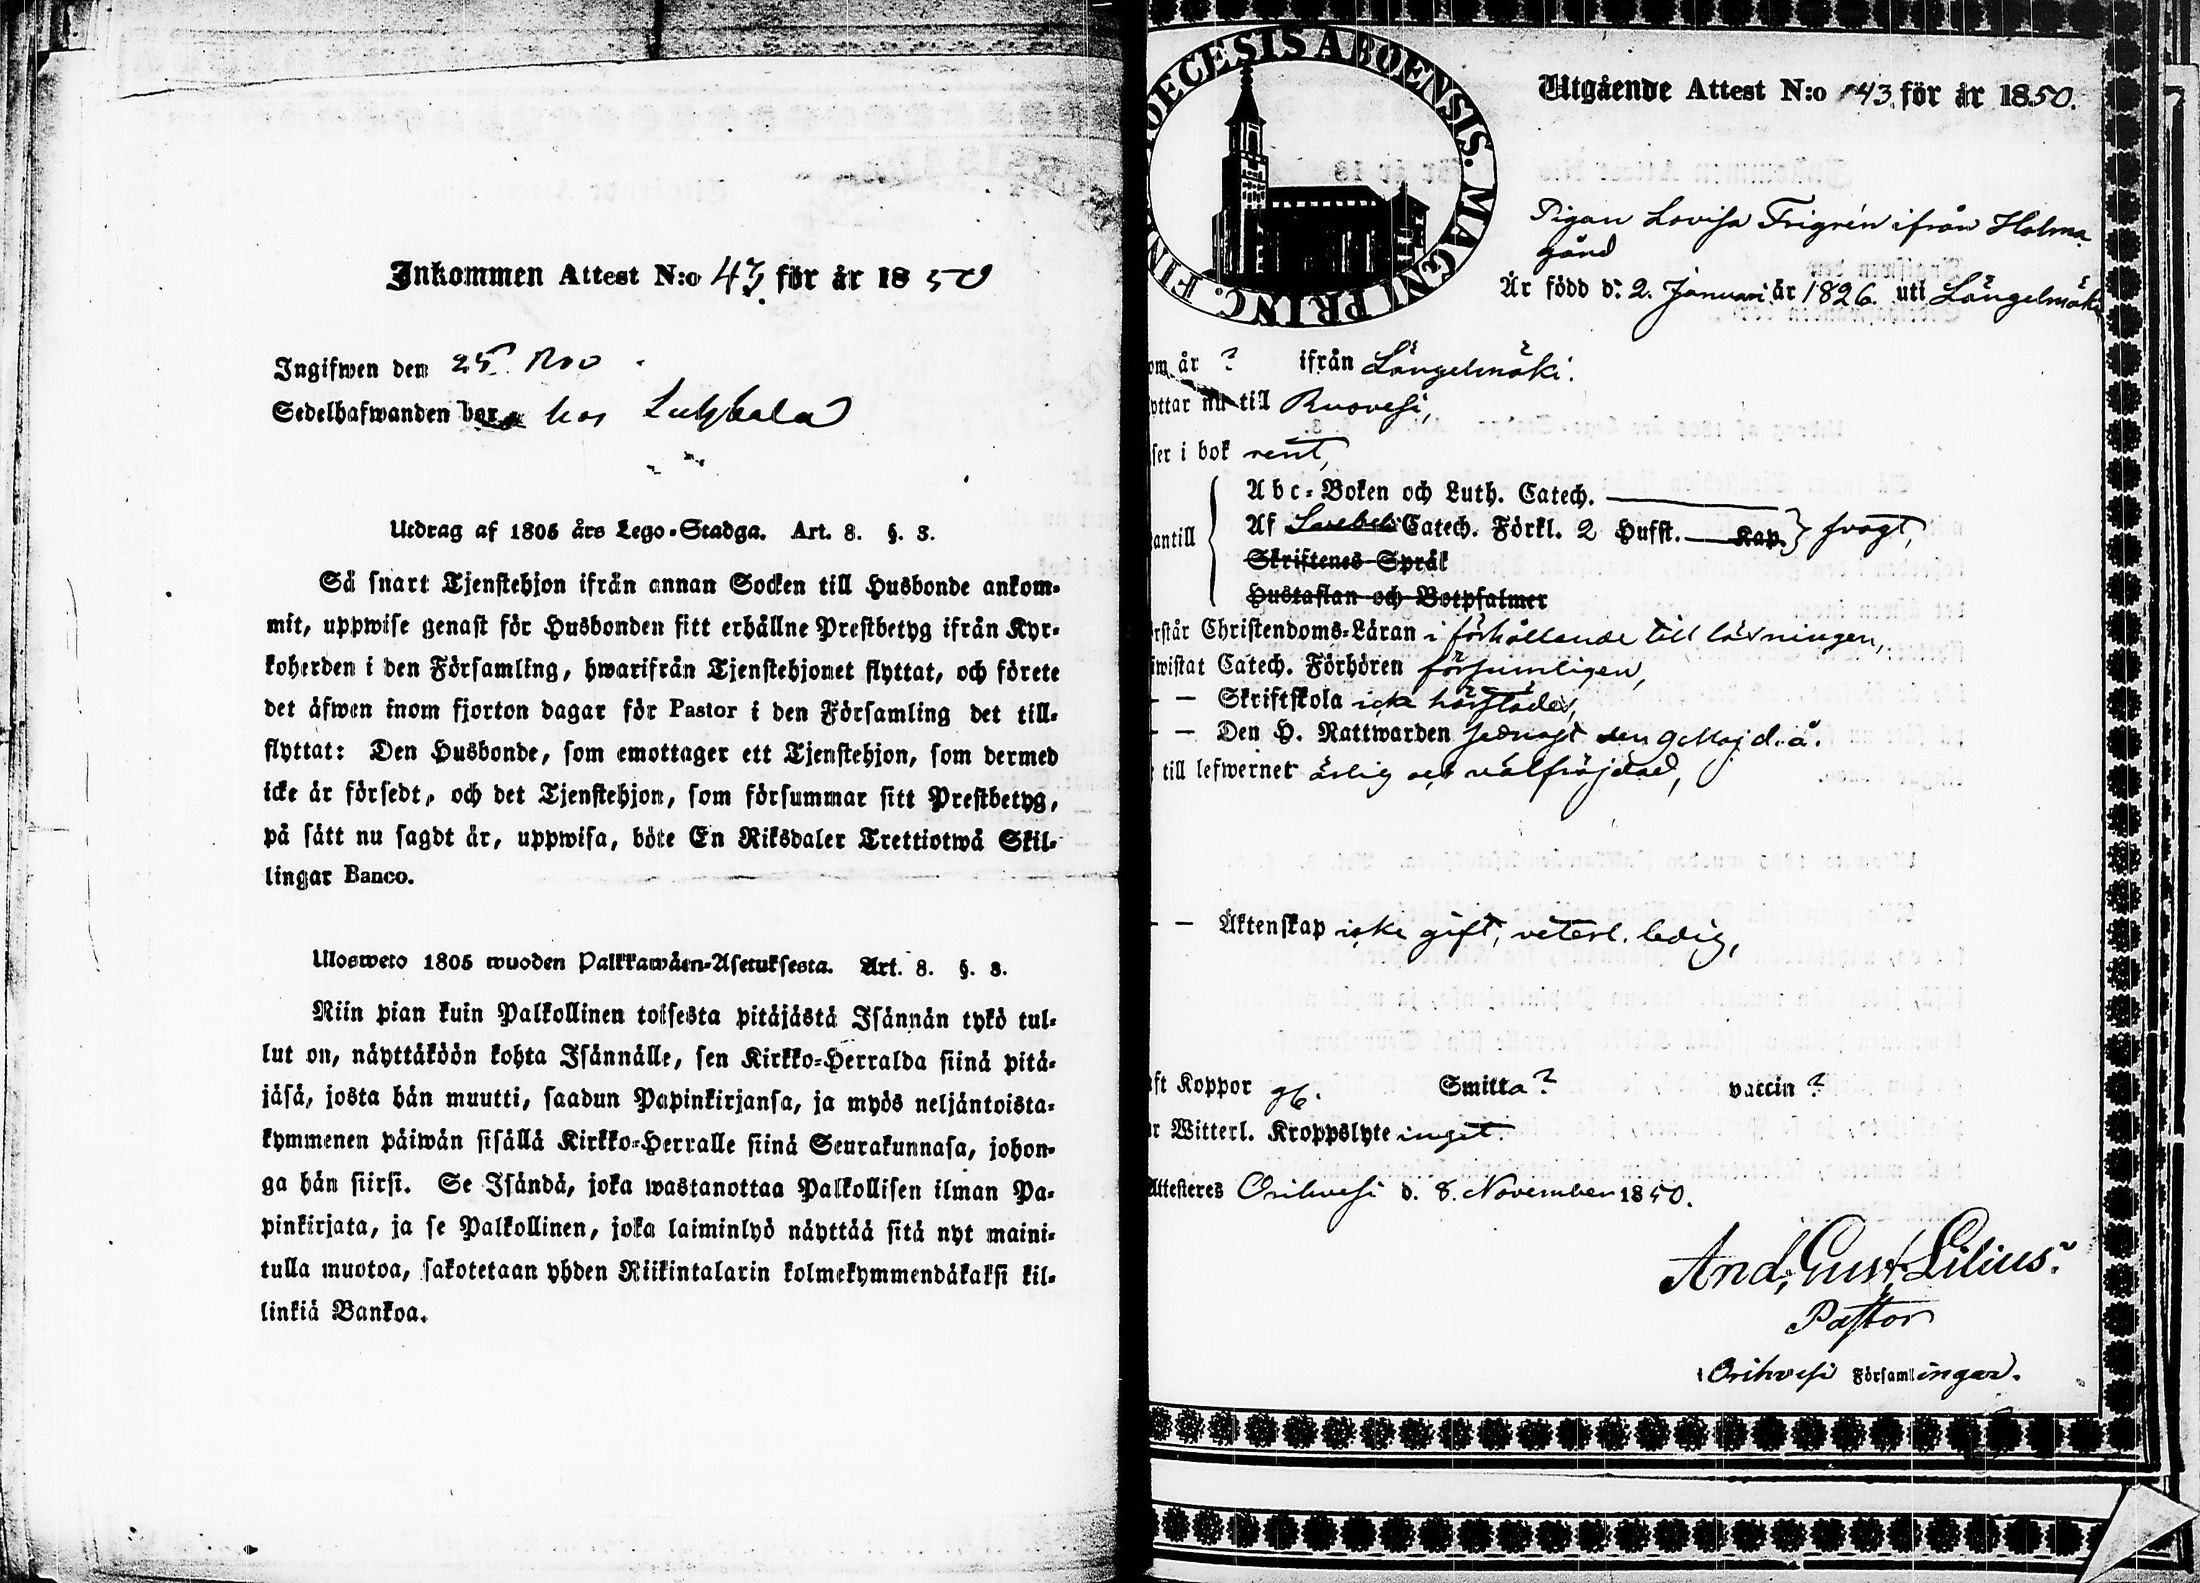 Inkommen Attest N:o 43 för år 1850
Ingifwen den 25 Nov
Sedelhafwanden bor hos
Utdrag af 1805 års Lego-Stadga. Art. 8. §. 3.
Så snart Tjenstehjon ifrån annan Socken till Husbonde ankom-
mit, uppwise genast för Husbonden sitt erhållne Prestbetyg ifrån Kyr-
koherden i den Församling, hwarifrån Tjenstehjonet flyttat, och förete
det äfwen inom fjorton dagar för Pastor i den Församling det till-
flyttat: Den Husbonde, som emottager ett Tjenstehjon, som dermed
icke är försedt, och det Tjenstehjon, som försummar sitt Prestbetyg,
på sätt nu sagdt är, uppwisa, böte En Riksdaler Trettiotwå Skil-
lingar Banco.
Ulosweto 1805 wuoden Palkkawäen-Asetuksesta. Art. 8. §. 3.
Niin pian kuin Palkollinen toisesta pitäjästä Isännän tykö tul-
lut on, näyttäköön kohta Isännälle, sen Kirkko-Herralda siinä pitä-
jäsä, josta hän muutti, saadun Papinkirjansa, ja myös neljäntoista-
kymmenen päiwän sisällä Kirkko-Herralle siinä Seurakunnasa, johon-
ga hän siirsi. Se Isändä, joka wastanottaa Palkollisen ilman Pa-
pinkirjata, ja se Palkollinen, joka laiminlyö näyttää sitä nyt maini-
tulla muotoa, sakotetaan yhden Riikintalarin kolmekymmendäkaksi kil-
linkiä Bankoa.
DIOECESIS ABOENSIS. MAGNI PRINC. FIN
Utgående Attest N:o 43 för år 1850.
Pigan Lovisa Frigrén ifrån Holma
gård
Är född d. 2. Januari år 1826. uti Längelmäki
om år ? ifrån Längelmäki.
yttar nu till Ruovesi,
ser i bok rent,
Abc-Boken och Luth. Catech.
antill Af Catech. Förkl. 2 Hufst. Kap. svagt,
Skriftenes Språk
Hustaflan och Botpsalmer
rstår Christendoms-Läran i förhållande till läsningen,
iwistat Catech. Förhören försumligen,
— — Skriftskola icke härstädes,
— — Den H. Nattwarden sednast den 9 Maj d. å.
till lefwernet ärlig och välfräjdad,
— — Äktenskap icke gift, veterl. ledig,
ft Koppor Smitta ? vaccin ?
r Witterl. Kroppslyte inget.
Attesteres Orihvesi d. 8. November 1850.
And. Gust. Lilius.
Pastor
i Orihvesi Församlingar.